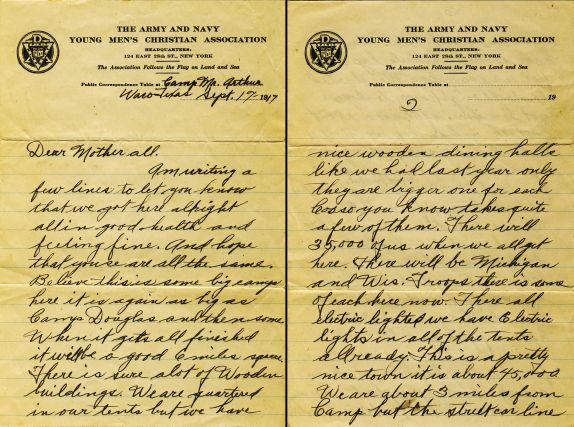 THE ARMY AND NAVY
YOUNG MEN'S CHRISTIAN ASSOCIATION
HEADQUARTERS:
124 EAST 28th ST., NEW YORK
The Association Follows the Flag on Land and Sea
Public Correspondence Table at Camp Mc. Arthur
Waco-Texas Sept. 17- 1917
Dear Mother all.
Am writing a
few lines to let you know
that we got here allright
all in good-health and
feeling fine. And hope
that you are all the same.
Believe this is some big camp
here it is again as big as
Camp Douglas and then some
When it gets all finished
it will be a good 6 miles square
There is sure alot of Wooden
buildings. We are quartered
in our tents but we have
THE ARMY AND NAVY
YOUNG MEN'S CHRISTIAN ASSOCIATION
HEADQUARTERS:
124 EAST 28th ST., NEW YORK
The Association Follows the Flag on Land and Sea
Public Correspondence Table at
19
2
nice wooden dining halls
like we had last year only
they are bigger one for each
Co so you know takes quite
a few of them. There will
35,000 of us when we all get
here. There will be Michigan
and Wis. Troops there is some
of each here now. There all
electric lighted we have Electric
lights in all of the tents
allready. This is a pretty
nice town it is about 45,000
We are about 3 miles from
Camp but the street car line